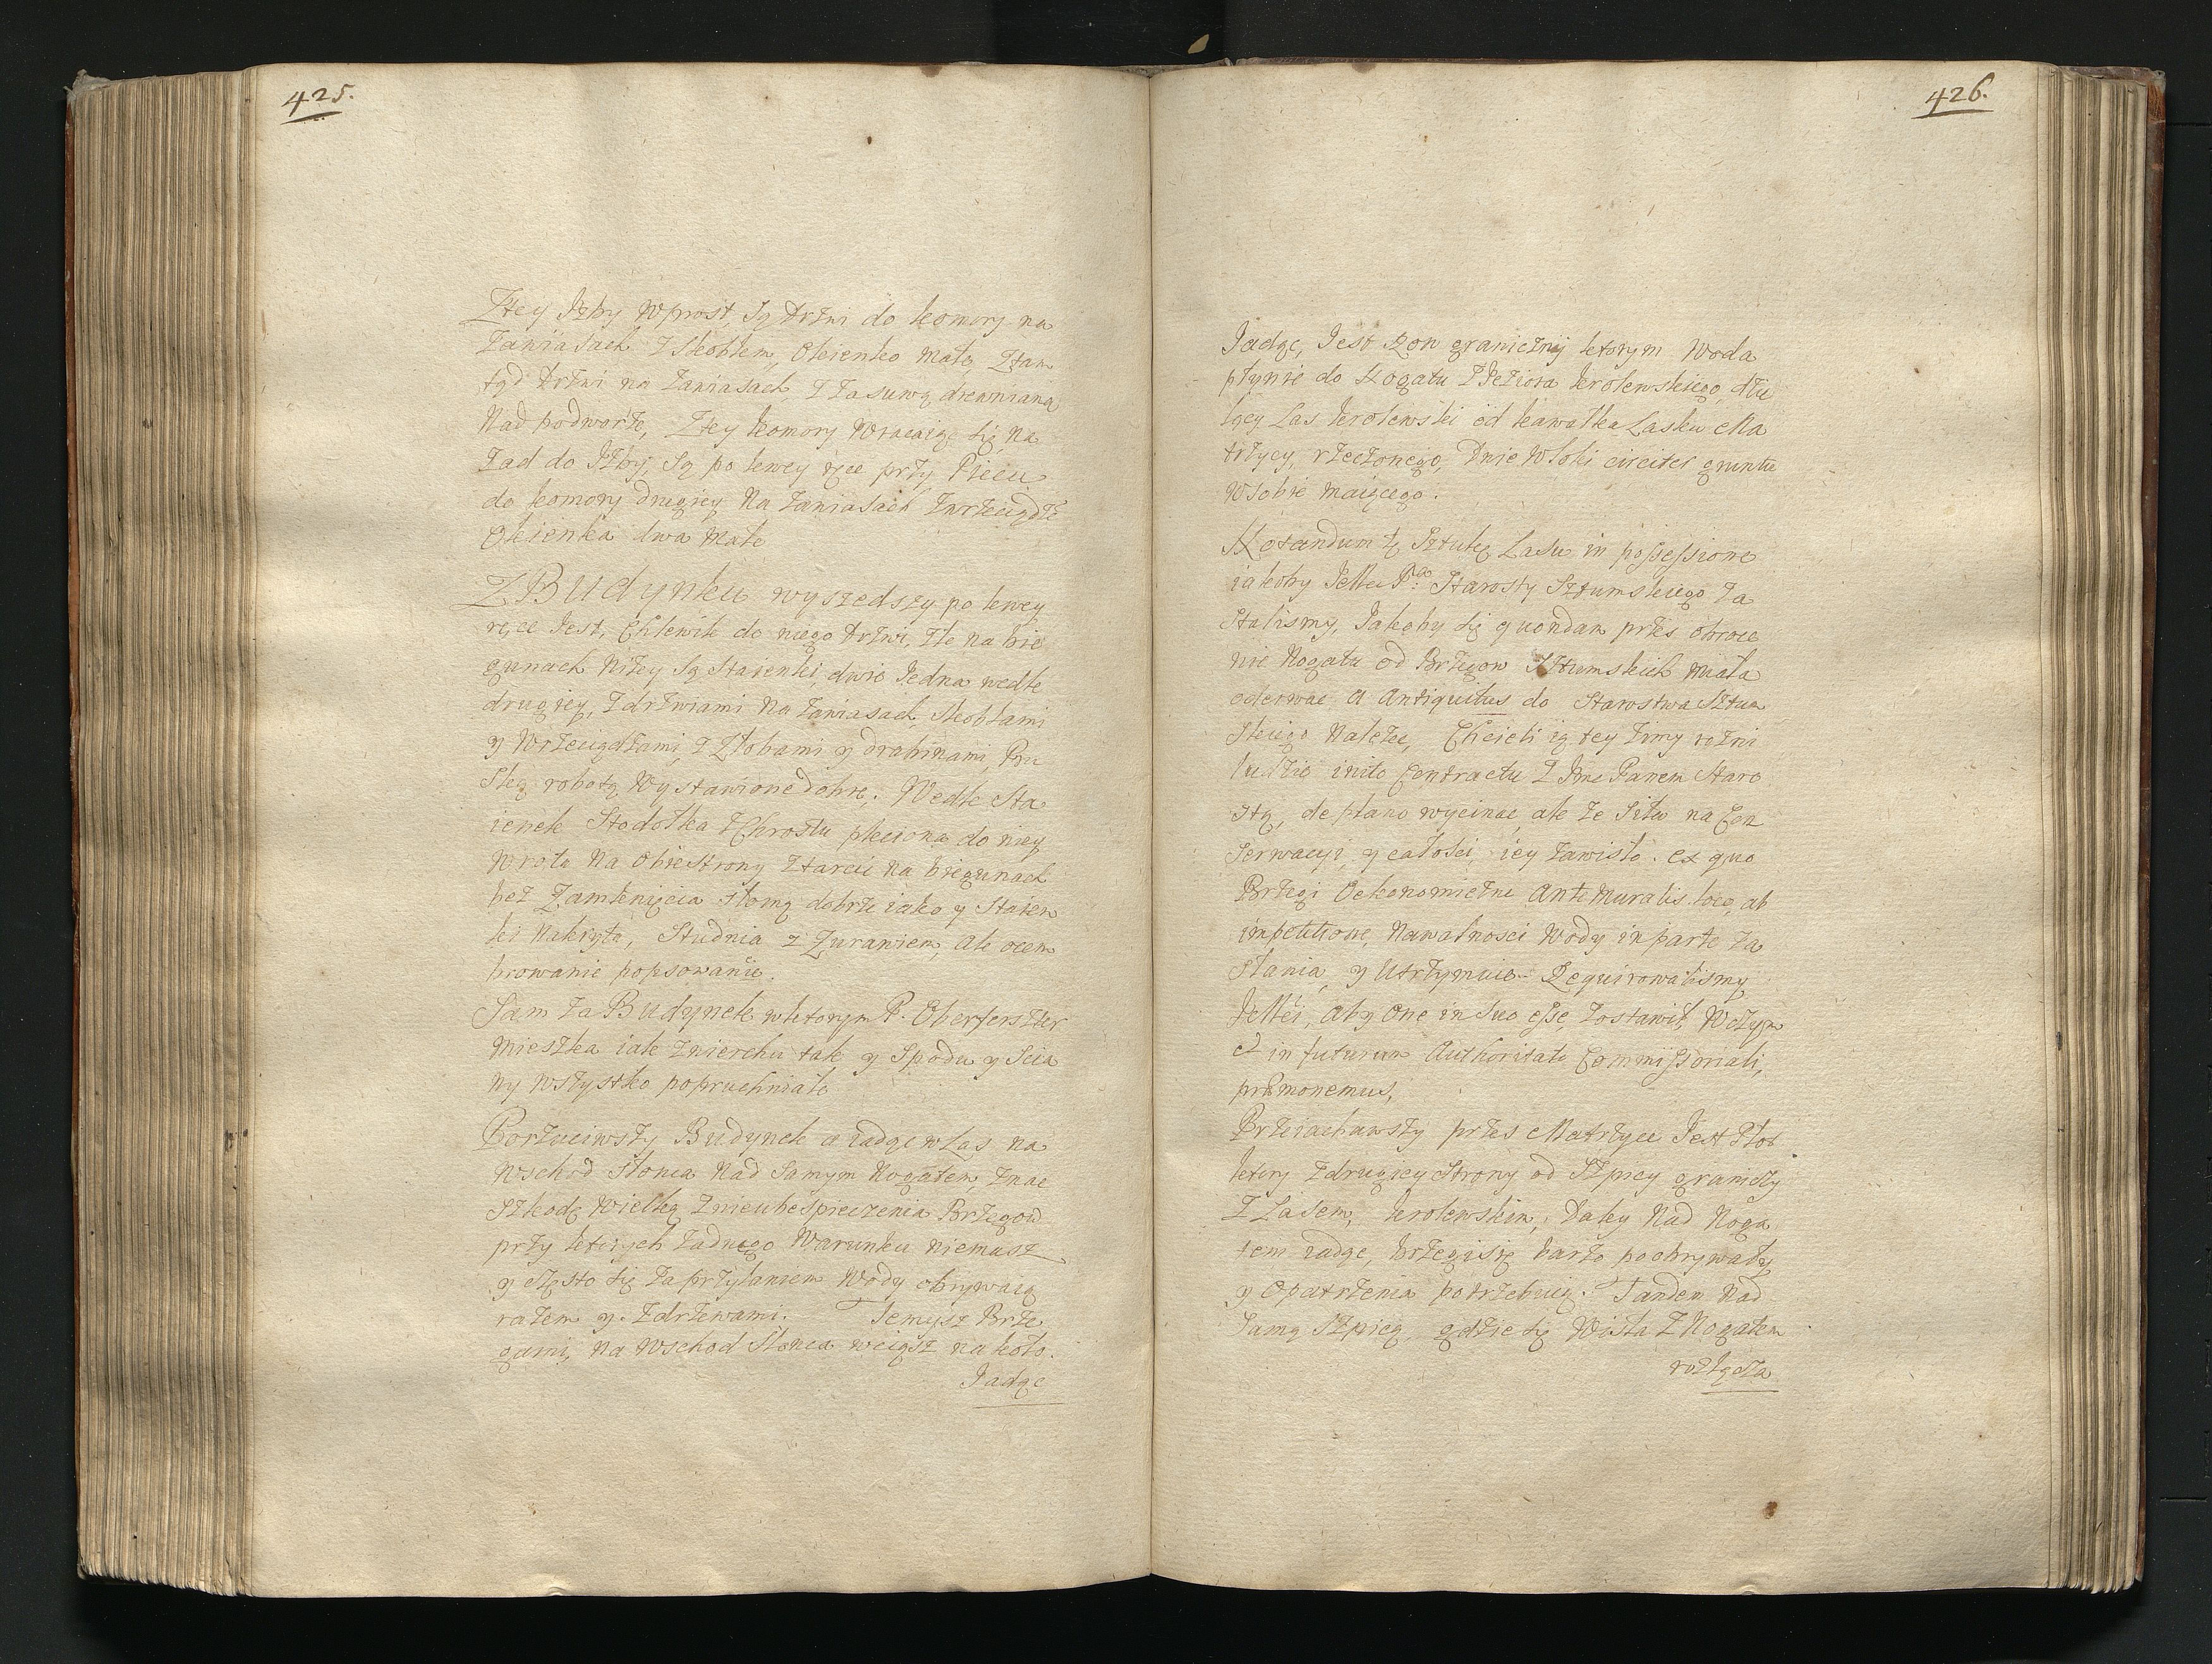 425.
Ztey Izby wprost, Są drzwi do komory na
Zawiasach z Skoblem, Okienko małe, Ztam
tąd drzwi na Zawiasach, z Zasuwą drewnianą
Nad podworze, Ztey komory wracaiąc się na
zad do Izby, Są po lewey ręce przy Piecu
do komory drugiey Na Zawiasach Zwrzeciądze
Okienka dwa małe
Z Budynku wyszedszy po lewey
ręce Jest, Chlewik do niego drzwi, złe na bie
gunach Niżey Są Staienki, dwie Jedna wedle
drugiey, z drzwiami Na Zawiasach Skoblami
y Wrzeciądzami, z Złobami y drabinami, Pru
ską robotą Wystawione dobre. Wedle Sta
ienek Stodołka z Chrostu pleciona do niey
Wrota Na Obie Strony z tarcic Na biegunach
bez Zamknięcia słomą dobrze iako y Staien
ki Nakryta, Studnia z Zurawiem, Ale ocem
browanie popsowanie.
Sam za Budynek w ktorym P. Oberferszter
Mieszka iak zwierchu tak y Spodu y Scia
ny wszystko popruchniałe
Porzuciwszy Budynek a iadąc w Las na
wschod słonca Nad Samym Nogatem, znac
Szkodę Wielką z nieubespieczenia Brzegow
przy ktorych żadnego Warunku niemasz
y często się za przybaniem Wody obrywaią
razem y z drzewami. Temysz Brze
gami, Na wschod Słonca wciąsz na koło.
Jadąc
426.
Jadąc, Jest Row graniczny ktorym Woda
płynie do Nogatu z Jeziora krolewskiego, dzie
lący Las krolewski od kawałka Lasku Ma
trzycy, rzeczonego, Dwie Włoki circiter gruntu
w Sobie maiącego.
Notandum tę Sztukę Lasu in possessione
iakoby JeMci Pna Starosty Sztumskiego Za
Stalismy, Jakoby się quondam przes obroce
nie Nogatu od Brzegow Sztumskich miała
oderwac A Antiquitus do Starostwa Sztum
Skiego Nalezec, Chcieli ią tey Zimy rożni
ludzie inito Contractu z Jmc Panem Staro
stą, de plano wycinac, ale że Siła na Con
Serwacyi y całości, iey Zawisło. ex quo
Brzegi Oekonomiczne Ante Muralis loco, ab
impetitione, Nawalnosci Wody in parte Za
słania, y Utrzymuie Requirowalismy
JeMci, Aby One in Suo esse, Zostawił, Wczym
et in futurum Authoritate Commissoriali,
præmonemus,
Przeiachawszy przes Matrzyce Jest Płot
ktory z drugiey Strony od Szpicy graniczy
z Lasem, krolewskim, Daley Nad Noga
tem iadąc, brzegi się barzo poobrywały
y Opatrzenia potrzebuią. Tandem Nad
Samą Szpicą, gdzie się Wisła z Nogatem
rozłącza